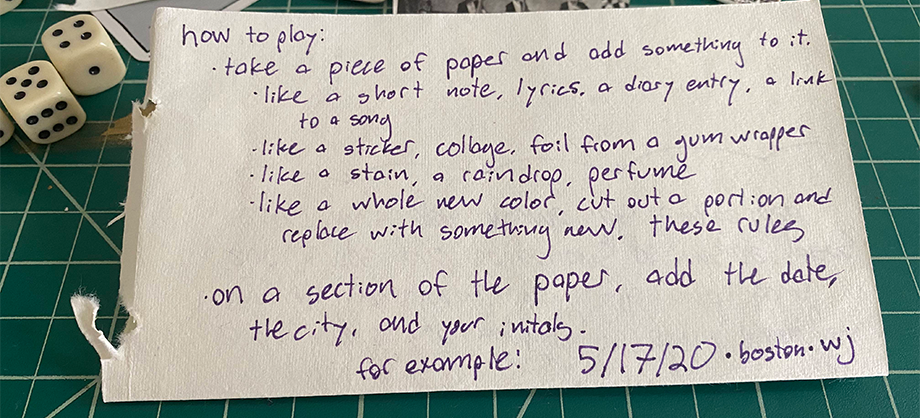 how to play:
· take a piece of paper and add something to it.
· like a short note, lyrics, a diary entry, a link
to a song
· like a sticker, collage, foil from a gum wrapper
· like a stain, a raindrop, perfume
· like a whole new color, cut out a portion and
replace with something new, these rules
· on a section of the paper, add the date,
the city, and your initals.
for example: 5/17/20 · boston · wj